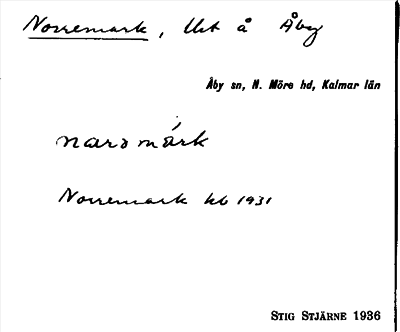 Norremark, Ust å Åby
Åby sn, N. Möre hd, Kalmar län
Norremark kb 1931
STIG STJÄRNE 1936